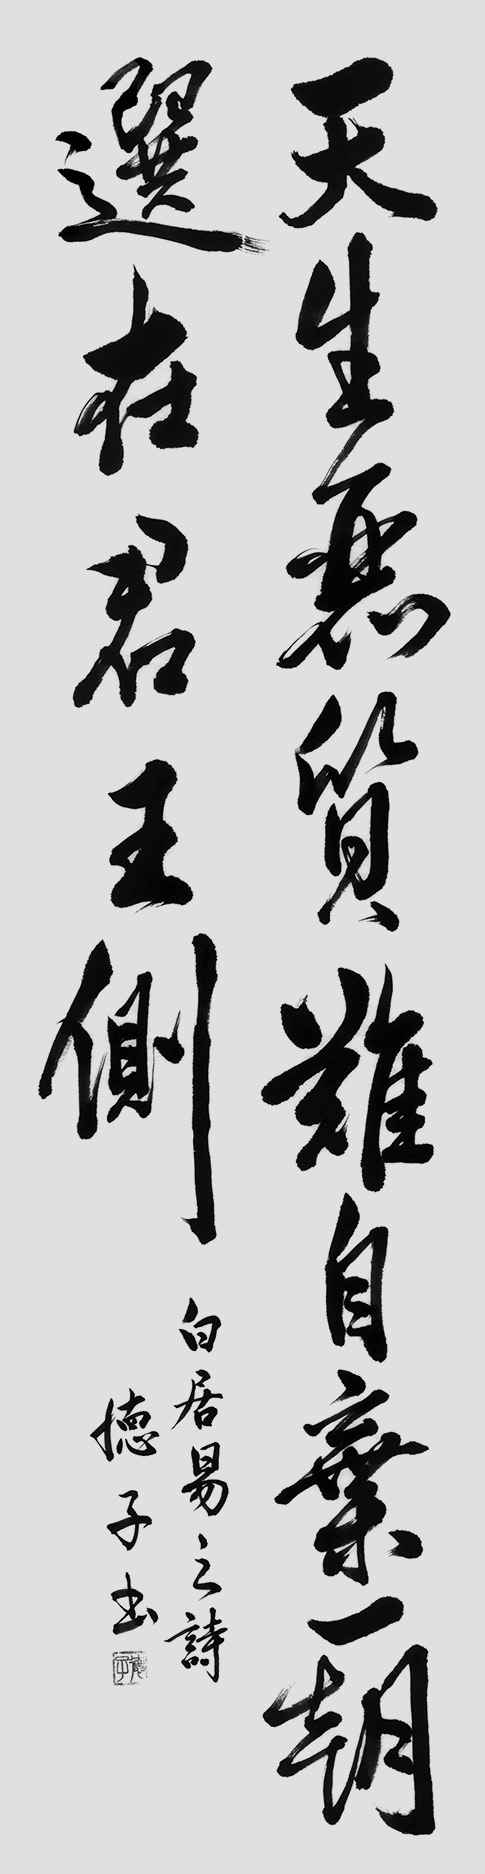 天生麗質難自棄一朝
選在君王側
白居易之詩
徳子書